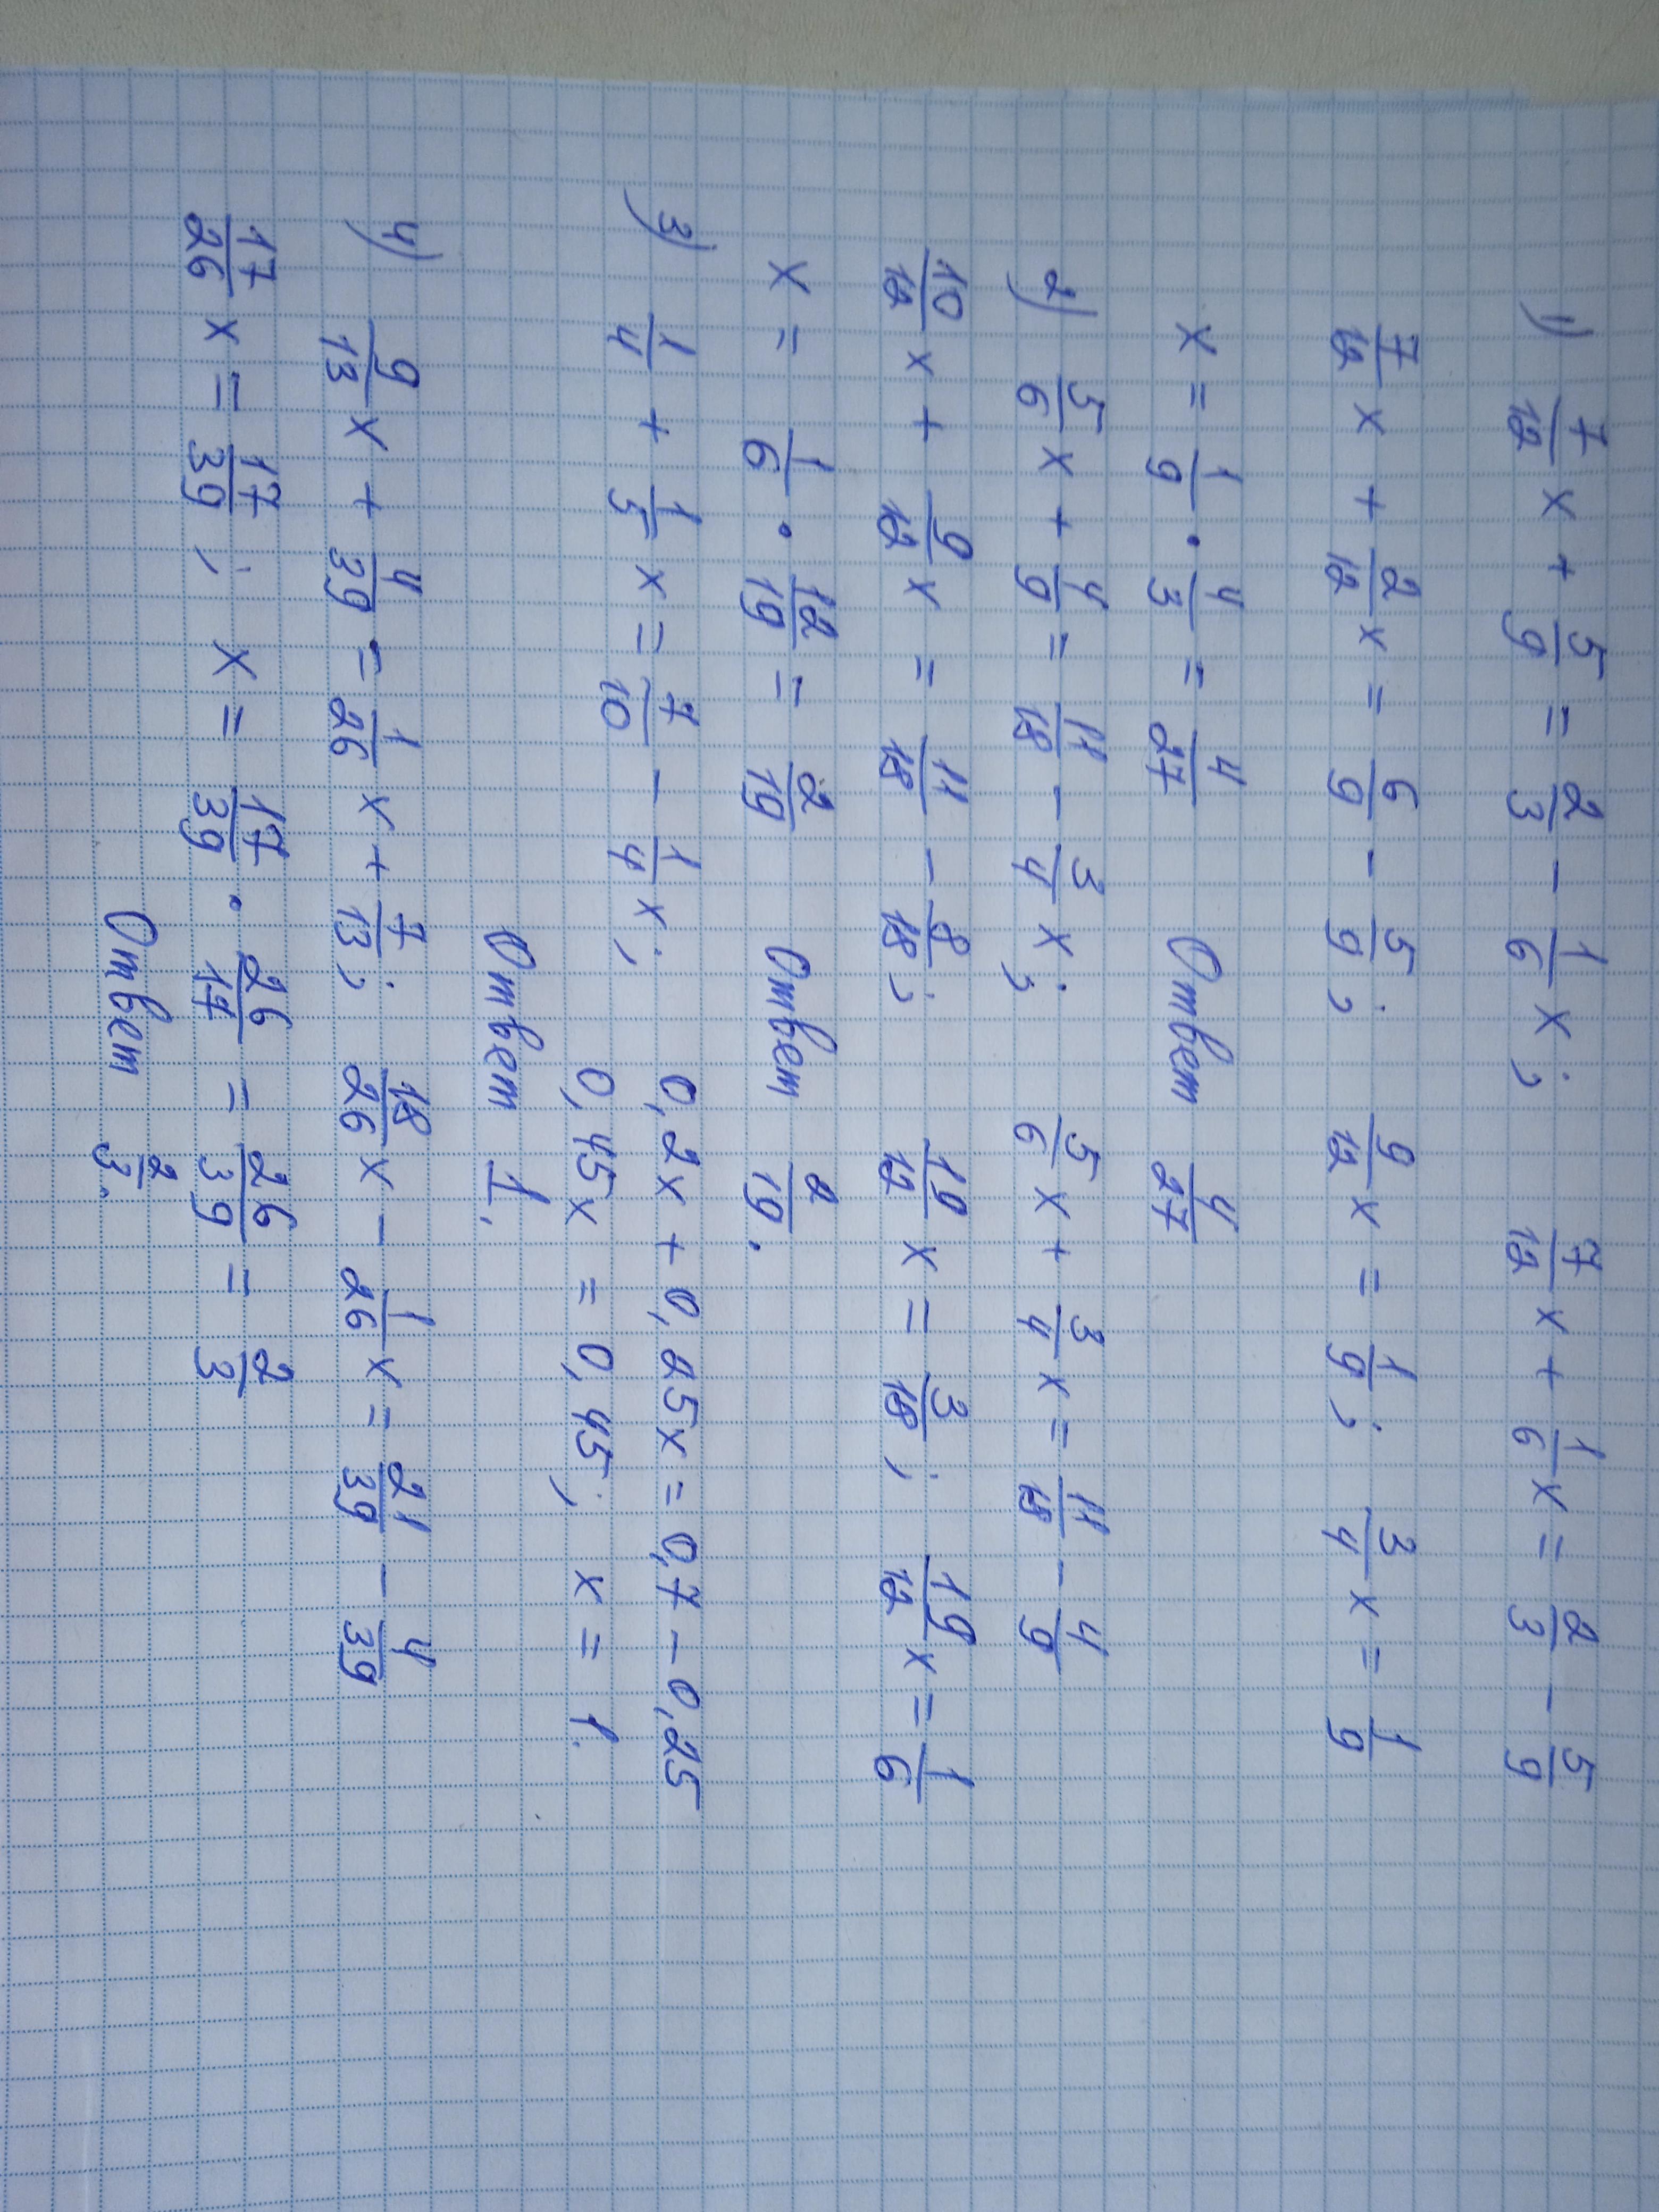 1) 7/12 x + 5/9 = 2/3 - 1/6 x; 7/12 x + 1/6 x = 2/3 - 5/9
7/12 x + 2/12 x = 6/9 - 5/9; 9/12 x = 1/9; 3/4 x = 1/9
x = 1/9 · 4/3 = 4/27 Ответ 4/27
2) 5/6 x + 4/9 = 11/18 - 3/4 x; 5/6 x + 3/4 x = 11/18 - 4/9
10/12 x + 9/12 x = 11/18 - 8/18; 19/12 x = 3/18; 19/12 x = 1/6
x = 1/6 · 12/19 = 2/19 Ответ 2/19.
3) 1/4 + 1/5 x = 7/10 - 1/4 x; 0,2x + 0,25x = 0,7 - 0,25
0,45x = 0,45; x = 1.
Ответ 1.
4) 9/13 x + 4/39 = 1/26 x + 7/13; 18/26 x - 1/26 x = 21/39 - 4/39
17/26 x = 17/39; x = 17/39 · 26/17 = 26/39 = 2/3
Ответ 2/3.